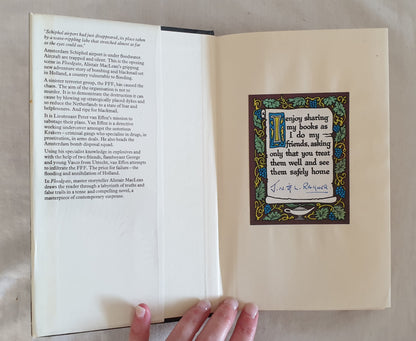 'Schiphol airport had just disappeared, its place taken
by a waste rippling lake that stretched almost as far
as the eyes could see.'
Amsterdam Schiphol airport is under floodwater.
Aircraft are trapped and silent. This is the opening
scene in Floodgate, Alistair MacLean's gripping
new adventure story of bombing and blackmail set
in Holland, a country vulnerable to flooding.
A sinister terrorist group, the FFF, has caused the
chaos. The aim of the organisation is not to
murder. It is to demonstrate the destruction it can
cause by blowing up strategically placed dykes and
so reduce the Netherlands to a state of fear and
helplessness. And ripe for blackmail.
It is Lieutenant Peter van Effen's mission to
sabotage their plans. Van Effen is a detective
working undercover amongst the notorious
Krakers – criminal gangs who specialise in drugs, in
prostitution, in arms deals. He also heads the
Amsterdam bomb disposal squad.
Using his specialist knowledge in explosives and
with the help of two friends, flamboyant George
and young Vasco from Utrecht, van Effen attempts
to infiltrate the FFF. The price for failure – the
flooding and annihilation of Holland.
In Floodgate, master storyteller Alistair MacLean
draws the reader through a labyrinth of truths and
false trails in a tense and compelling novel, a
masterpiece of contemporary suspense.
I enjoy sharing
my books as
I do my
friends, asking
only that you treat
them well and see
them safely home
J. N. & L. RAYNER